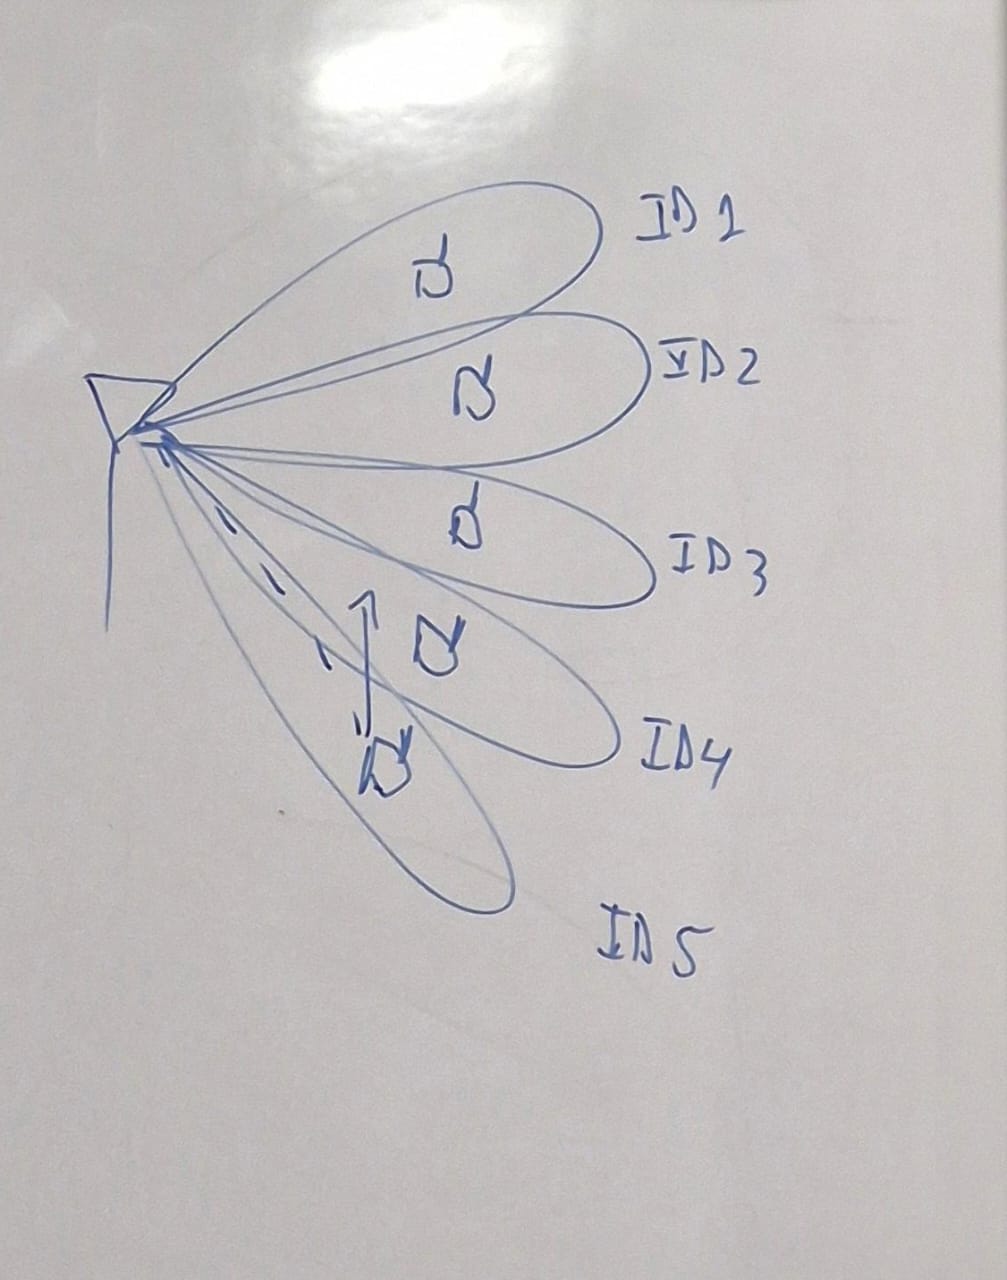 ID1
ID2
ID3
ID4
ID5